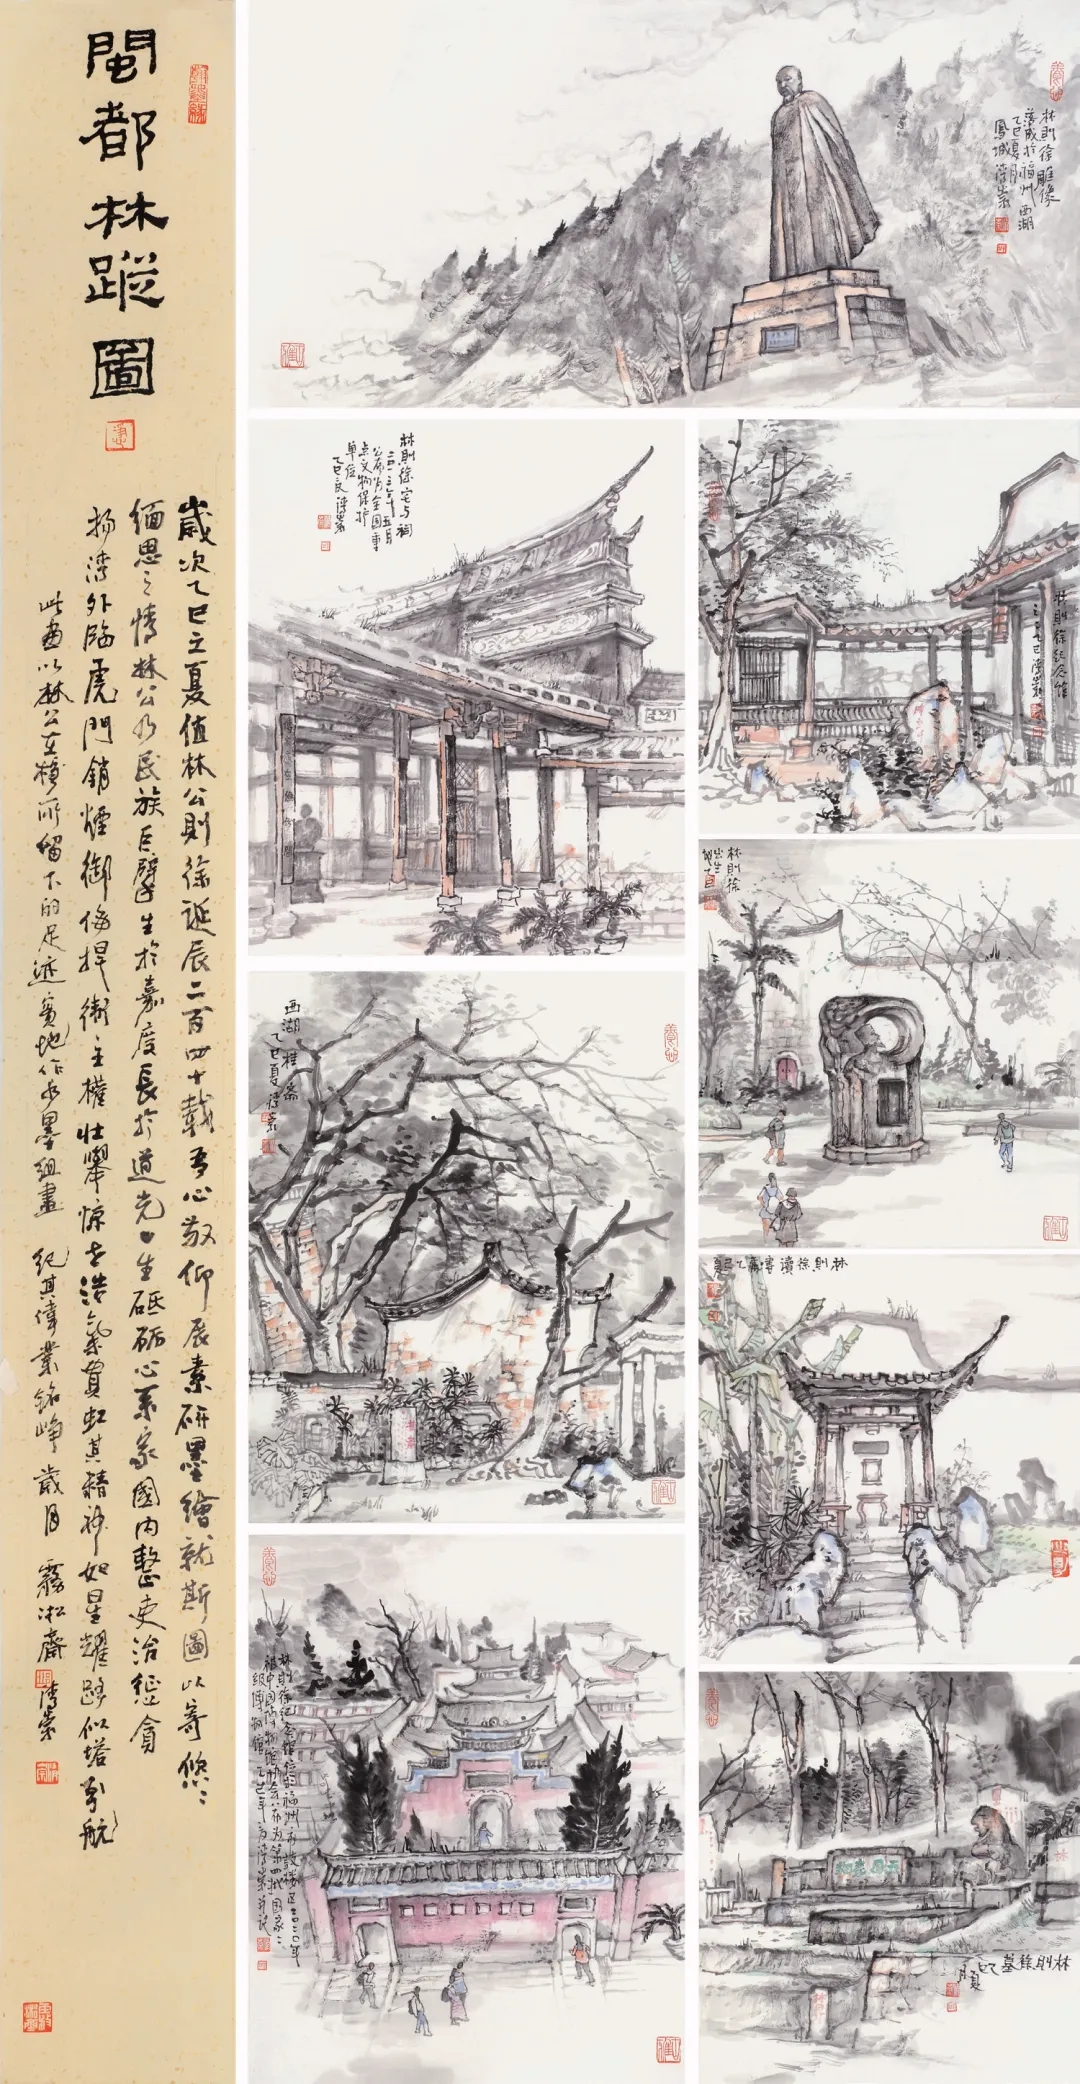 閩都林蹤圖
歲次乙巳立夏值林公則徐誕辰二百四十載吾心敬仰展素研墨繪就斯圖以寄悠悠
緬思之情林公乃民族巨擘生於嘉慶長於道光一生砥礪心系家國內整吏治懲貪
揚清外臨虎門銷煙御侮捍衛主權壯舉惊世浩氣貫虹其精神如星耀路似塔引航
此畫以林公在榕所留下的足迹實地作水墨組畫 紀其偉業銘崢嶸歲月 霧淞齋
林則徐雕像
落成於福州西湖
乙巳夏月
林則徐宅与祠
二〇一三年五月
公布为全国重
点文物保护
單位
林則徐紀念館
林則徐
出生地
西湖桂齋
乙巳夏
林則徐讀書處
林則徐紀念館位於福州市鼓楼区二〇二〇年
被中国博物馆协会公布为第四批国家二
级博物館
林則徐墓乙巳夏月